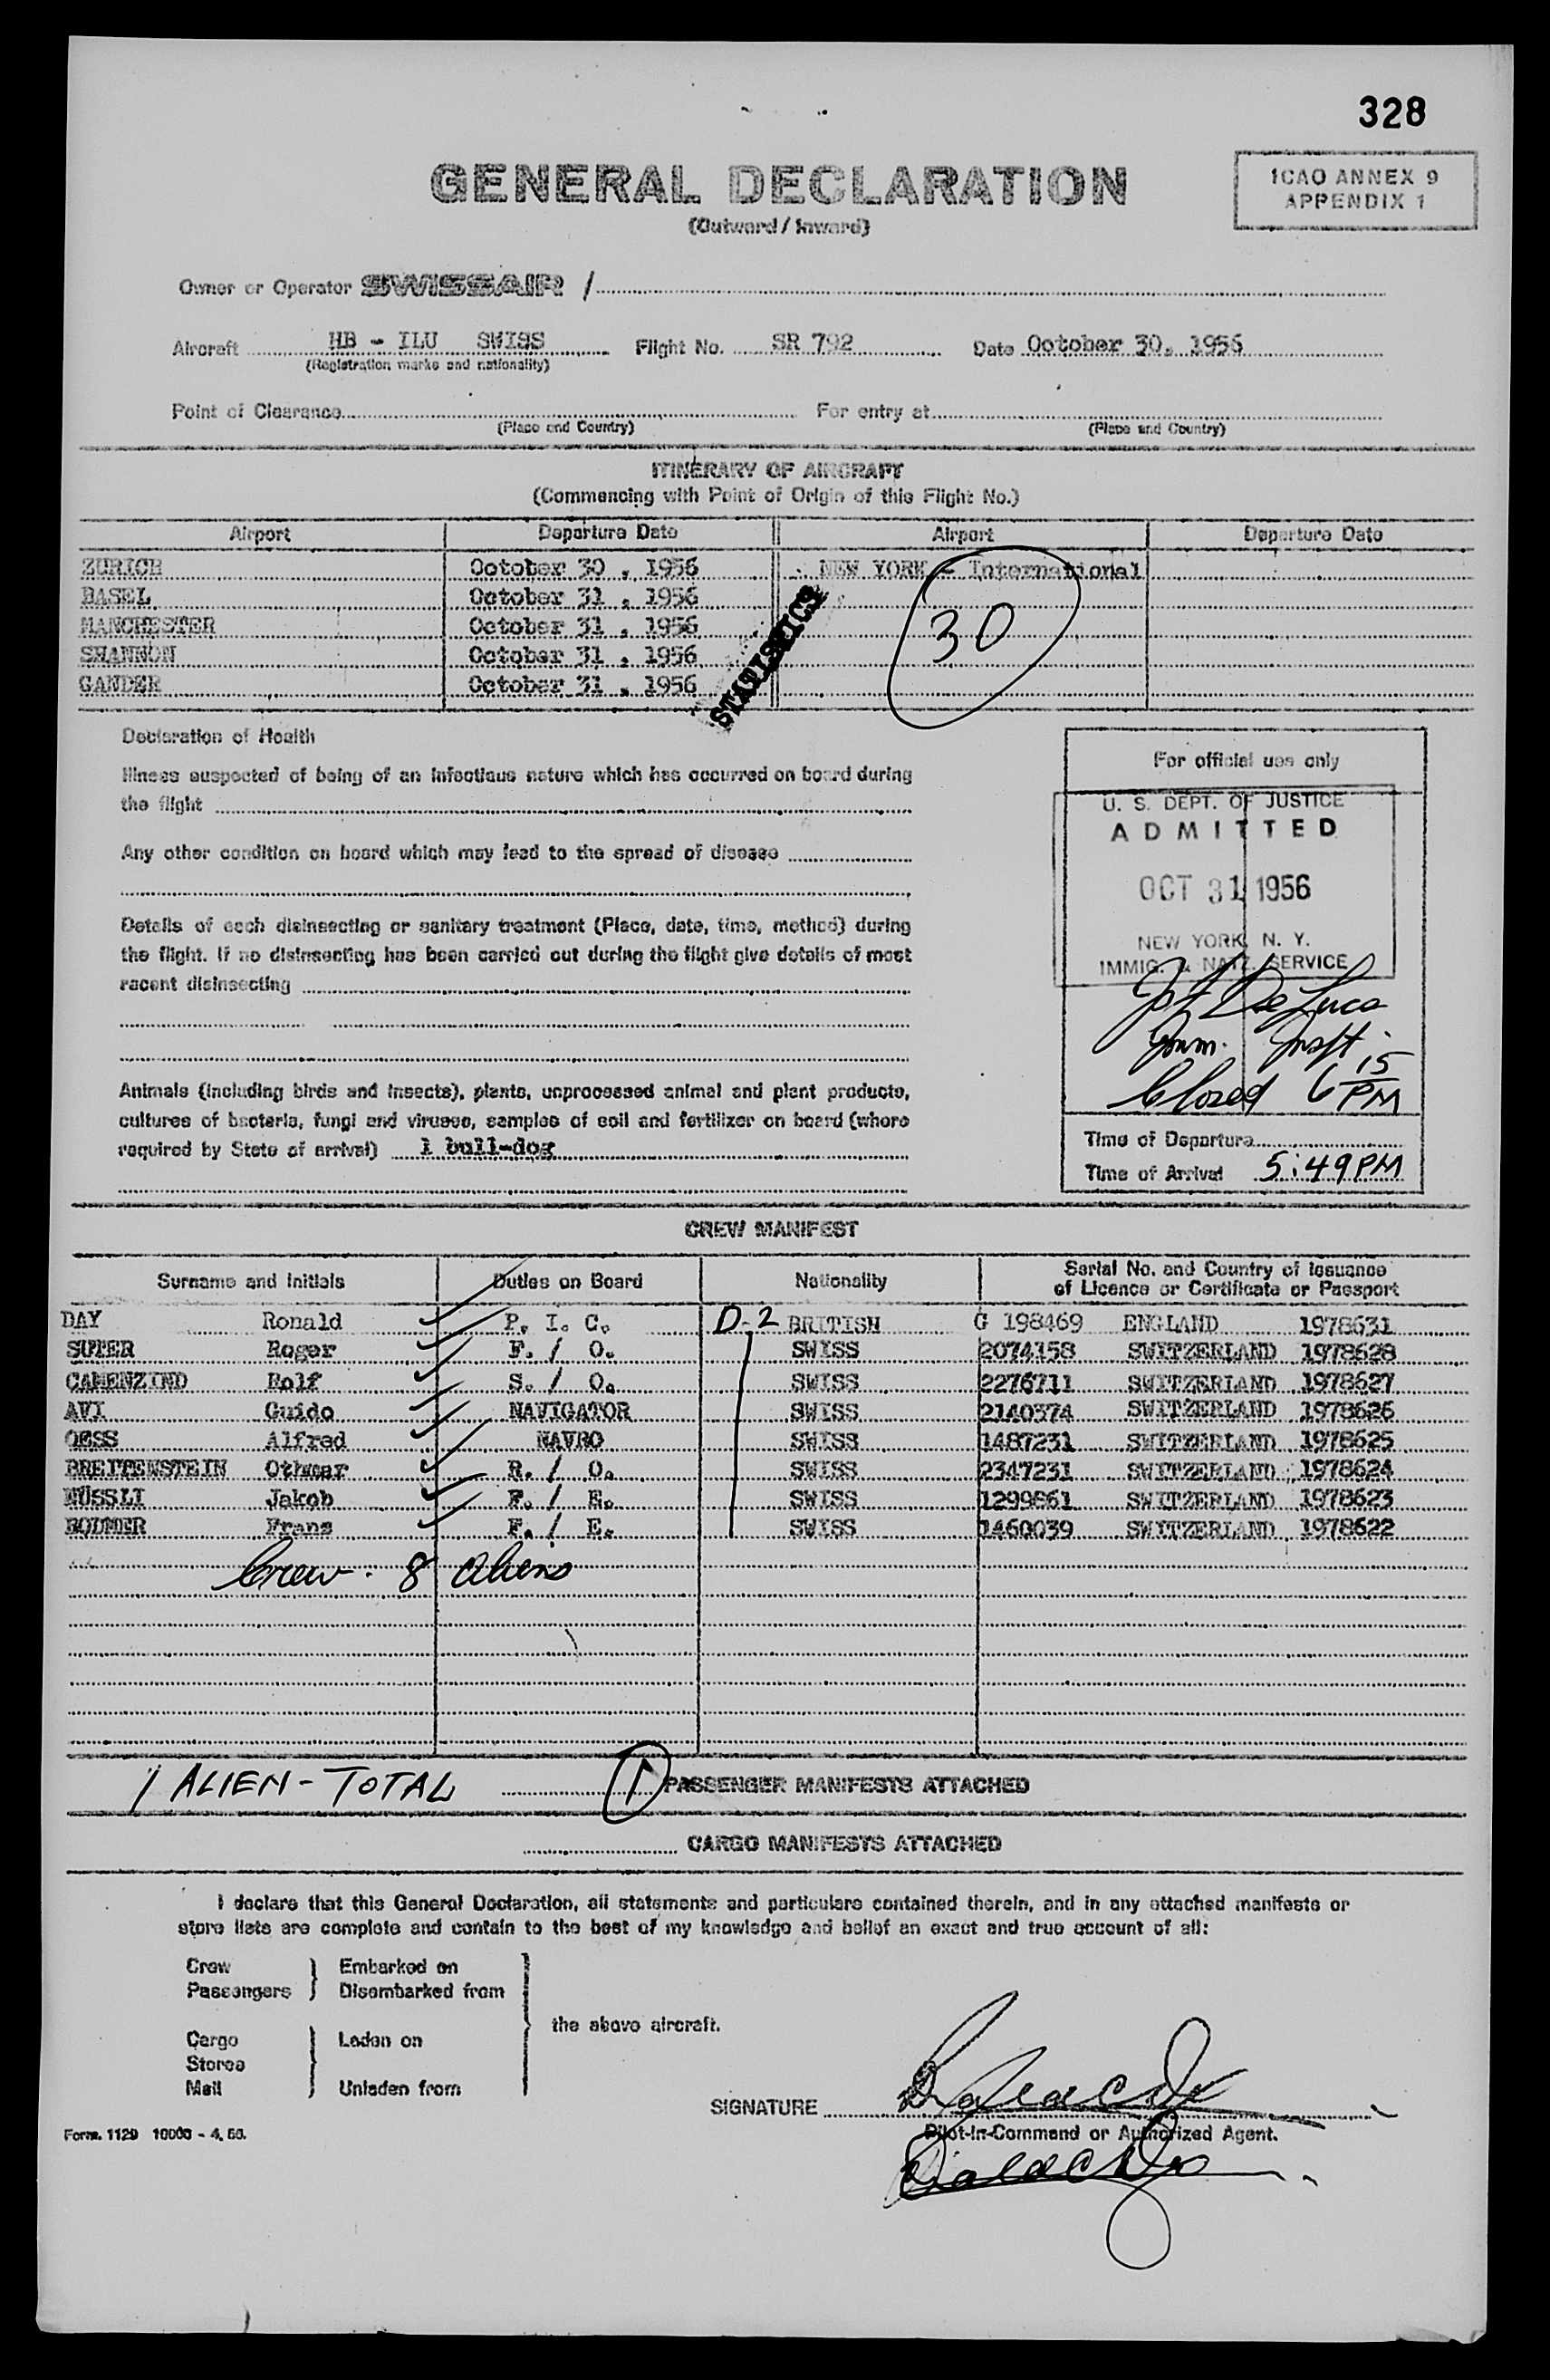 328
GENERAL DECLARATION
(Outward / Inward)
ICAO ANNEX 9
APPENDIX 1
Owner or Operator SWISSAIR /
Aircraft HB - ILU SWISS Flight No. SR 792 Date October 30. 1956
(Registration marks and nationality)
Point of Clearance For entry at
(Place and Country) (Place and Country)
ITINERARY OF AIRCRAFT
(Commencing with Point of Origin of this Flight No.)
Airport Departure Date Airport Departure Date
ZURICH October 30 . 1956 NEW YORK - International
BASEL October 31 . 1956
MANCHESTER October 31 . 1956
SHANNON October 31 . 1956
GANDER October 31 . 1956
STATISTICS
30
Declaration of Health
Illness suspected of being of an infectious nature which has occurred on board during
the flight
Any other condition on board which may lead to the spread of disease
Details of each disinsecting or sanitary treatment (Place, date, time, method) during
the flight. If no disinsecting has been carried out during the flight give details of most
recent disinsecting
Animals (including birds and insects), plants, unprocessed animal and plant products,
cultures of bacteria, fungi and viruses, samples of soil and fertilizer on board (where
required by State of arrival) 1 bull-dog
For official use only
U. S. DEPT. OF JUSTICE
ADMITTED
OCT 31 1956
NEW YORK, N. Y.
IMMIG. & NATZ. SERVICE
De Luca
Imm. Inspt.
Closed 6 15 PM
Time of Departure
Time of Arrival 5:49 PM
CREW MANIFEST
Surname and Initials Duties on Board Nationality Serial No. and Country of Issuance
of Licence or Certificate or Passport
DAY Ronald P. I. C. D-2 BRITISH G 198469 ENGLAND 1978631
SUTER Roger F. / O. SWISS 2074158 SWITZERLAND 1978628
CAMENZIND Rolf S. / O. SWISS 2276711 SWITZERLAND 1978627
AVI Guido NAVIGATOR SWISS 2140374 SWITZERLAND 1978626
OESS Alfred NAVRO SWISS 1487231 SWITZERLAND 1978625
BREITENSTEIN Othmar R. / O. SWISS 2347231 SWITZERLAND 1978624
NÜSSLI Jakob F. / E. SWISS 1299861 SWITZERLAND 1978623
BODMER Frans F. / E. SWISS 1460039 SWITZERLAND 1978622
Crew. 8 aliens
1 ALIEN - TOTAL 1 PASSENGER MANIFESTS ATTACHED
CARGO MANIFESTS ATTACHED
I declare that this General Declaration, all statements and particulars contained therein, and in any attached manifests or
store lists are complete and contain to the best of my knowledge and belief an exact and true account of all:
Crew Embarked on
Passengers Disembarked from
the above aircraft.
Cargo Laden on
Stores
Mail Unladen from
SIGNATURE
Pilot-in-Command or Authorized Agent.
Form. 1129 10000 - 4. 56.